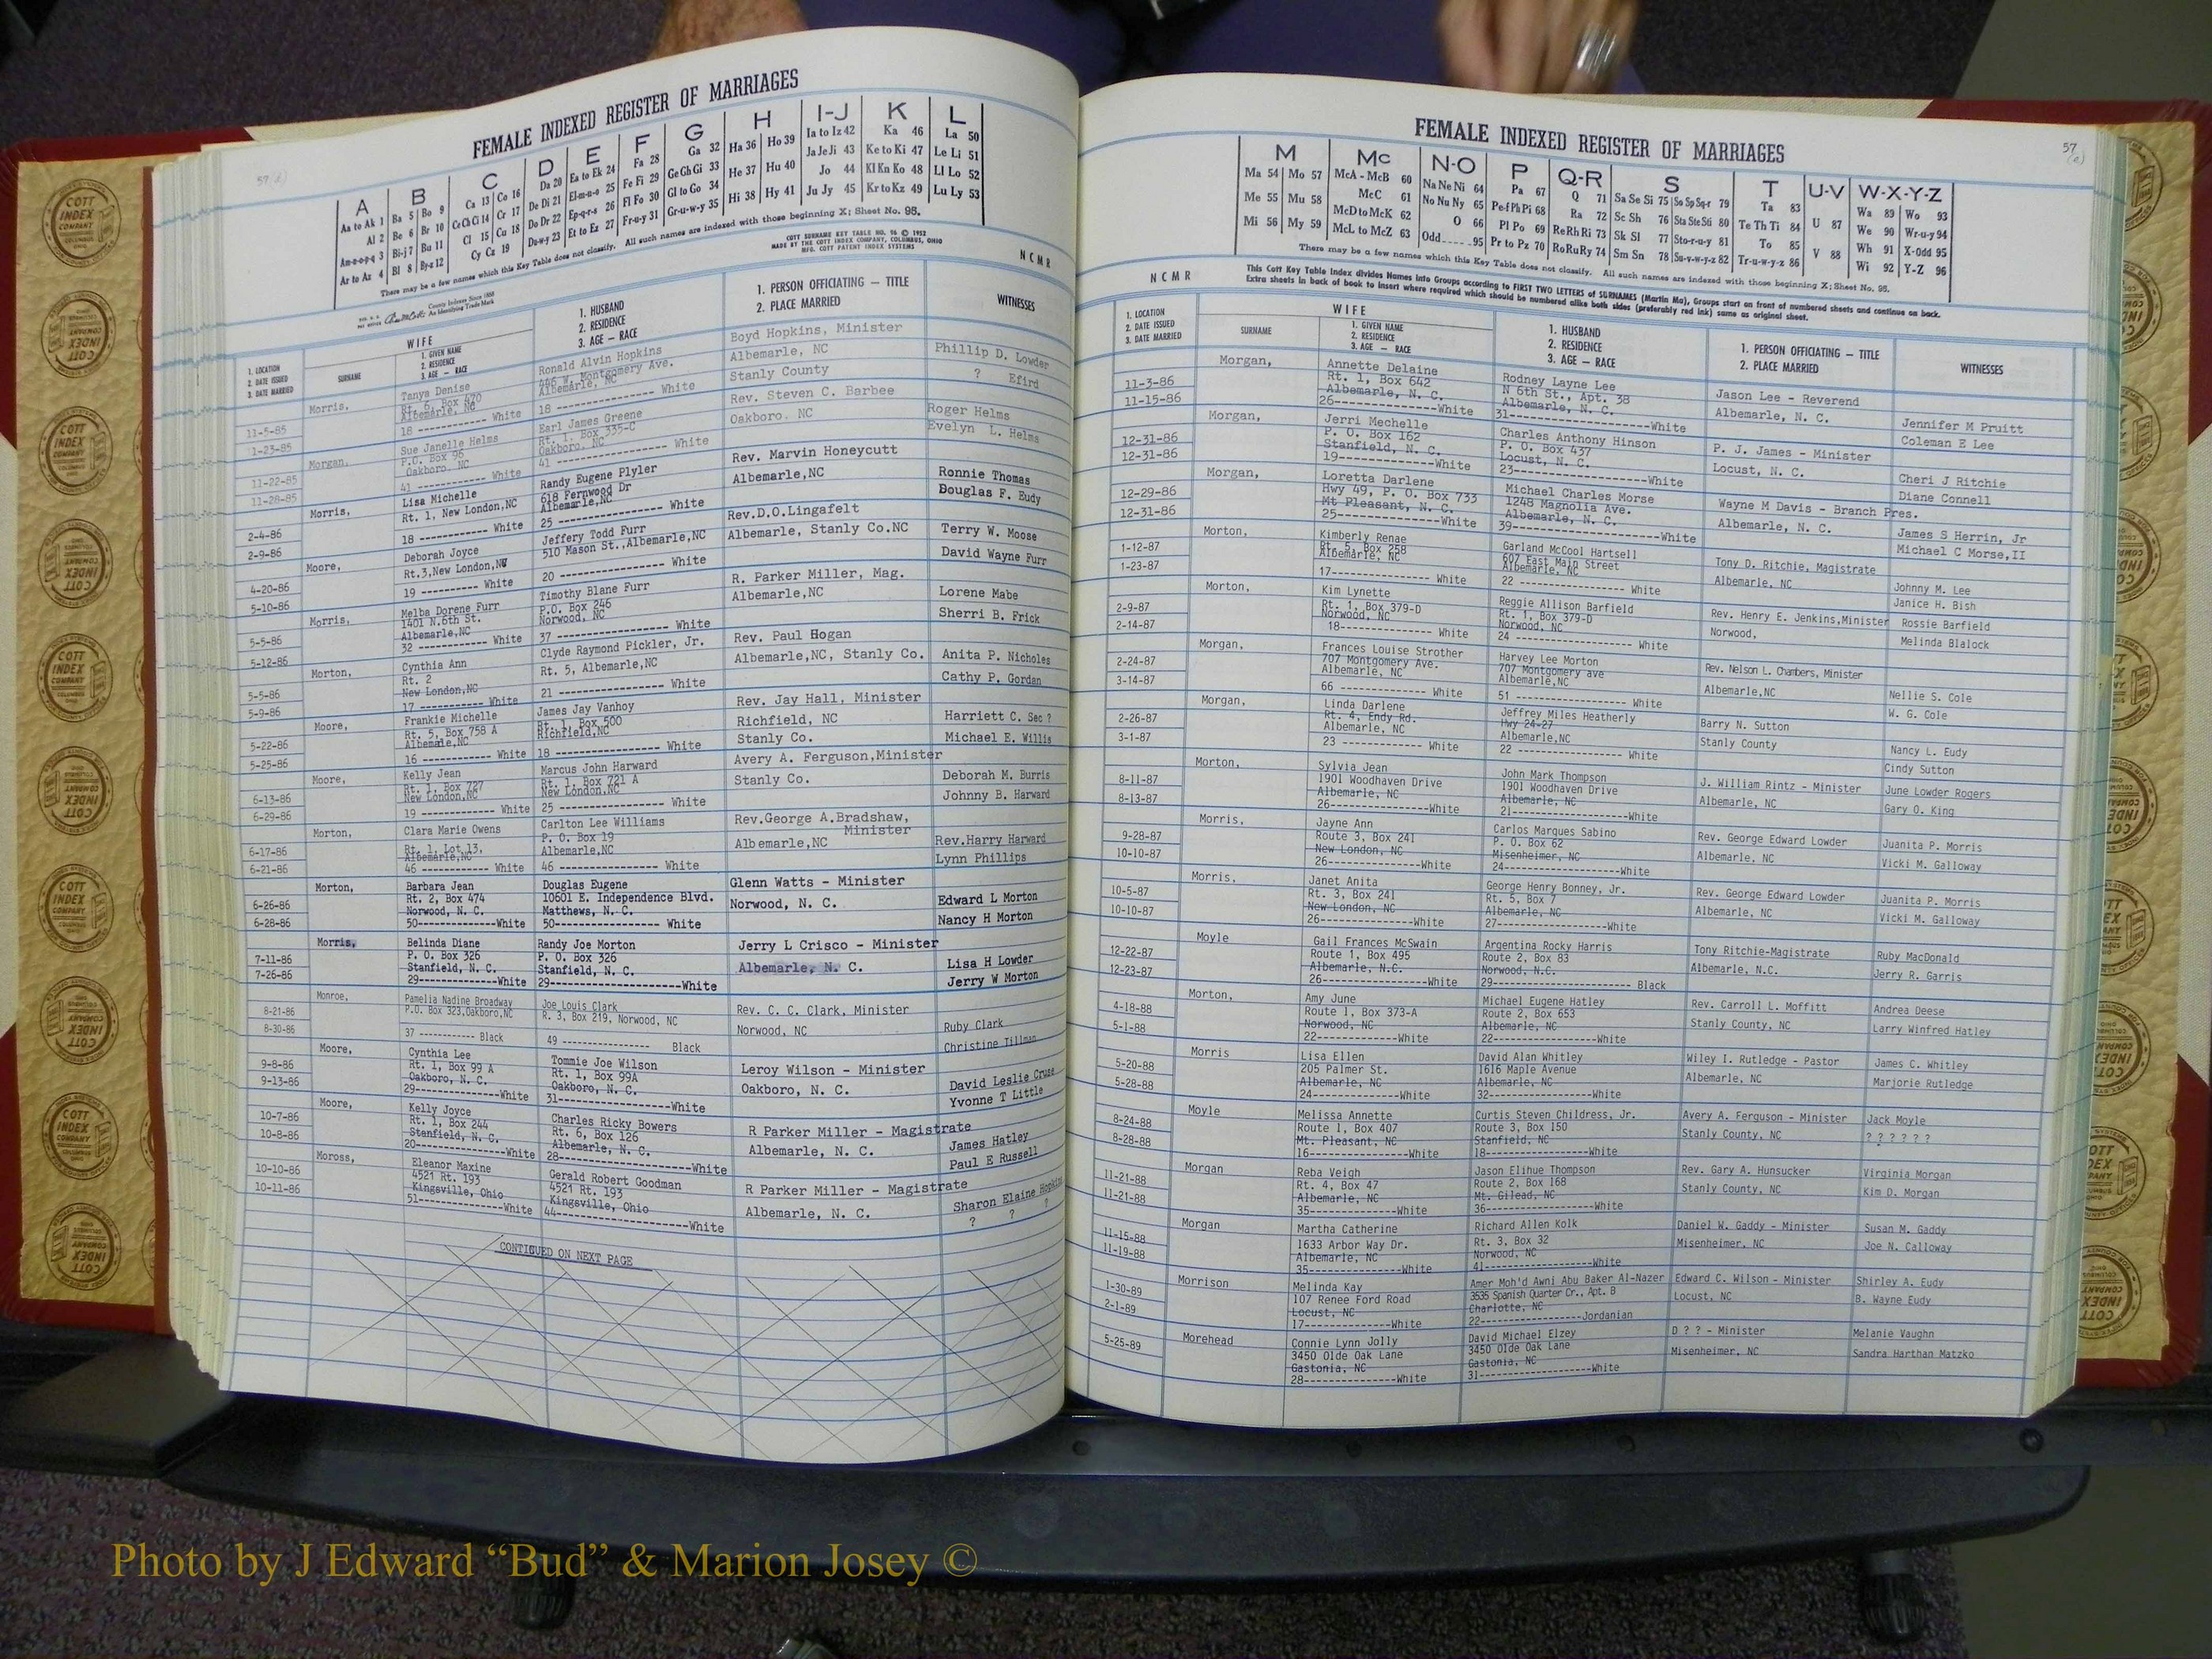 57
FEMALE INDEXED REGISTER OF MARRIAGES
A B C D E F G H I-J K L
Aa to Ak 1 Ba 5 Bo 9 Ca 13 Co 16 Da 20 Ea to Ek 24 Fa 28 Ga 32 Ha 36 Ho 39 Ia to Iz 42 Ka 46 La 50
Al 2 Be 6 Br 10 Ce Ch Ci 14 Cr 17 De Di 21 El-m-n-o 25 Fe Fi 29 Ge Gh Gi 33 He 37 Hu 40 Ja Je Ji 43 Ke to Ki 47 Le Li 51
Am-n-o-p-q 3 Bi-j 7 Bu 11 Cl 15 Cu 18 Do Dr 22 Ep-q-r-s 26 Fl Fo 30 Gl to Go 34 Hi 38 Hy 41 Jo 44 Kl Kn Ko 48 Ll Lo 52
Ar to Az 4 Bl 8 By-z 12 Cy Cz 19 Du-w-y 23 Et to Ez 27 Fr-u-y 31 Gr-u-w-y 35 Ju Jy 45 Kr to Kz 49 Lu Ly 53
There may be a few names which this Key Table does not classify. All such names are indexed with those beginning X; Sheet No. 95.
COTT SURNAME KEY TABLE NO. 96 © 1952
MADE BY THE COTT INDEX COMPANY, COLUMBUS, OHIO
MFG. COTT PATENT INDEX SYSTEMS
County Indexes Since 1888
An Identifying Trade Mark
N C M R
1. LOCATION
2. DATE ISSUED
3. DATE MARRIED
WIFE
SURNAME
1. GIVEN NAME
2. RESIDENCE
3. AGE — RACE
1. HUSBAND
2. RESIDENCE
3. AGE — RACE
1. PERSON OFFICIATING — TITLE
2. PLACE MARRIED
WITNESSES
11-5-85
1-23-85
Morris,
Tanya Denise
Rt. 6, Box 470
Albemarle, NC
18 --------- White
Ronald Alvin Hopkins
446 W. Montgomery Ave.
Albemarle, NC
18 --------- White
Boyd Hopkins, Minister
Albemarle, NC
Stanly County
Phillip D. Lowder
? Efird
11-22-85
11-28-85
Morgan,
Sue Janelle Helms
P.O. Box 96
Oakboro, NC
41 --------- White
Earl James Greene
Rt. 1, Box 335-C
Oakboro, NC
41 --------- White
Rev. Steven C. Barbee
Oakboro, NC
Roger Helms
Evelyn L. Helms
2-4-86
2-9-86
Morris,
Lisa Michelle
Rt. 1, New London,NC
18 --------- White
Randy Eugene Plyler
618 Fernwood Dr
Albemarle,NC
25 --------- White
Rev. Marvin Honeycutt
Albemarle,NC
Ronnie Thomas
Douglas F. Eudy
4-20-86
5-10-86
Moore,
Deborah Joyce
Rt.3,New London,NC
19 --------- White
Jeffery Todd Furr
510 Mason St.,Albemarle,NC
20 --------- White
Rev.D.O.Lingafelt
Albemarle, Stanly Co.NC
Terry W. Moose
David Wayne Furr
5-5-86
5-12-86
Morris,
Melba Dorene Furr
1401 N.6th St.
Albemarle,NC
32 --------- White
Timothy Blane Furr
P.O. Box 246
Norwood, NC
37 --------- White
R. Parker Miller, Mag.
Albemarle,NC
Lorene Mabe
Sherri B. Frick
5-5-86
5-9-86
Morton,
Cynthia Ann
Rt. 2
New London,NC
17 --------- White
Clyde Raymond Pickler, Jr.
Rt. 5, Albemarle,NC
21 --------- White
Rev. Paul Hogan
Albemarle,NC, Stanly Co.
Anita P. Nicholes
Cathy P. Gordan
5-22-86
5-25-86
Moore,
Frankie Michelle
Rt. 5, Box 758 A
Albemale,NC
16 --------- White
James Jay Vanhoy
Rt. 1, Box 500
Richfield,NC
18 --------- White
Rev. Jay Hall, Minister
Richfield, NC
Stanly Co.
Harriett C. Sec ?
Michael E. Willis
6-13-86
6-29-86
Moore,
Kelly Jean
Rt. 1, Box 727
New London,NC
19 --------- White
Marcus John Harward
Rt. 1, Box 721 A
New London,NC
25 --------- White
Avery A. Ferguson,Minister
Stanly Co.
Deborah M. Burris
Johnny B. Harward
6-17-86
6-21-86
Morton,
Clara Marie Owens
Rt. 1, Lot 13,
Albemarle,NC
46 --------- White
Carlton Lee Williams
P. O. Box 19
Albemarle,NC
46 --------- White
Rev.George A.Bradshaw,
Minister
Albemarle,NC
Rev.Harry Harward
Lynn Phillips
6-26-86
6-28-86
Morton,
Barbara Jean
Rt. 2, Box 474
Norwood, N. C.
50---------White
Douglas Eugene
10601 E. Independence Blvd.
Matthews, N. C.
50--------- White
Glenn Watts - Minister
Norwood, N. C.
Edward L Morton
Nancy H Morton
7-11-86
7-26-86
Morris,
Belinda Diane
P. O. Box 326
Stanfield, N. C.
29---------White
Randy Joe Morton
P. O. Box 326
Stanfield, N. C.
29---------White
Jerry L Crisco - Minister
Albemarle, N. C.
Lisa H Lowder
Jerry W Morton
8-21-86
8-30-86
Monroe,
Pamelia Nadine Broadway
P.O. Box 323,Oakboro,NC
37 --------- Black
Joe Louis Clark
R. 3, Box 219, Norwood, NC
49 --------- Black
Rev. C. C. Clark, Minister
Norwood, NC
Ruby Clark
Christine Tillman
9-8-86
9-13-86
Moore,
Cynthia Lee
Rt. 1, Box 99 A
Oakboro, N. C.
29---------White
Tommie Joe Wilson
Rt. 1, Box 99A
Oakboro, N. C.
31---------White
Leroy Wilson - Minister
Oakboro, N. C.
David Leslie Cruse
Yvonne T Little
10-7-86
10-8-86
Moore,
Kelly Joyce
Rt. 1, Box 244
Stanfield, N. C.
20---------White
Charles Ricky Bowers
Rt. 6, Box 126
Albemarle, N. C.
28---------White
R Parker Miller - Magistrate
Albemarle, N. C.
James Hatley
Paul E Russell
10-10-86
10-11-86
Moross,
Eleanor Maxine
4521 Rt. 193
Kingsville, Ohio
51---------White
Gerald Robert Goodman
4521 Rt. 193
Kingsville, Ohio
44---------White
R Parker Miller - Magistrate
Albemarle, N. C.
Sharon Elaine Hopkins
? ? ?
CONTIGUED ON NEXT PAGE
57
(a)
FEMALE INDEXED REGISTER OF MARRIAGES
M Mc N-O P Q-R S T U-V W-X-Y-Z
Ma 54 Mo 57 McA - McB 60 Na Ne Ni 64 Pa 67 Q 71 Sa Se Si 75 So Sp Sq-r 79 Ta 83 Wa 89 Wo 93
Me 55 Mu 58 McC 61 No Nu Ny 65 Pe-f Ph Pi 68 Ra 72 Sc Sh 76 Sta Ste Sti 80 Te Th Ti 84 U 87 We 90 Wr-u-y 94
Mi 56 My 59 McD to McK 62 O 66 Pl Po 69 Re Rh Ri 73 Sk Sl 77 Sto-r-u-y 81 To 85 Wh 91 X-Odd 95
McL to McZ 63 Odd.....95 Pr to Pz 70 Ro Ru Ry 74 Sm Sn 78 Su-v-w-y-z 82 Tr-u-w-y-z 86 V 88 Wi 92 Y-Z 96
There may be a few names which this Key Table does not classify. All such names are indexed with those beginning X; Sheet No. 95.
This Cott Key Table Index divides Names into Groups according to FIRST TWO LETTERS of SURNAMES (Martin Ma), Groups start on front of numbered sheets and continue on back.
Extra sheets in back of book to insert where required which should be numbered alike both sides (preferably red ink) same as original sheet.
N C M R
1. LOCATION
2. DATE ISSUED
3. DATE MARRIED
WIFE
SURNAME
1. GIVEN NAME
2. RESIDENCE
3. AGE — RACE
1. HUSBAND
2. RESIDENCE
3. AGE — RACE
1. PERSON OFFICIATING — TITLE
2. PLACE MARRIED
WITNESSES
11-3-86
11-15-86
Morgan,
Annette Delaine
Rt. 1, Box 642
Albemarle, N. C.
26---------White
Rodney Layne Lee
N 6th St., Apt. 38
Albemarle, N. C.
31---------White
Jason Lee - Reverend
Albemarle, N. C.
Jennifer M Pruitt
Coleman E Lee
12-31-86
12-31-86
Morgan,
Jerri Mechelle
P. O. Box 162
Stanfield, N. C.
19---------White
Charles Anthony Hinson
P. O. Box 437
Locust, N. C.
23---------White
P. J. James - Minister
Locust, N. C.
Cheri J Ritchie
Diane Connell
12-29-86
12-31-86
Morgan,
Loretta Darlene
Hwy 49, P. O. Box 733
Mt Pleasant, N. C.
25---------White
Michael Charles Morse
1248 Magnolia Ave.
Albemarle, N. C.
39---------White
Wayne M Davis - Branch Pres.
Albemarle, N. C.
James S Herrin, Jr
Michael C Morse,II
1-12-87
1-23-87
Morton,
Kimberly Renae
Rt. 5, Box 258
Albemarle, NC
17--------- White
Garland McCool Hartsell
607 East Main Street
Albemarle, NC
22 --------- White
Tony D. Ritchie, Magistrate
Albemarle, NC
Johnny M. Lee
Janice H. Bish
2-9-87
2-14-87
Morton,
Kim Lynette
Rt. 1, Box 379-D
Norwood, NC
18--------- White
Reggie Allison Barfield
Rt. 1, Box 379-D
Norwood, NC
24 --------- White
Rev. Henry E. Jenkins,Minister
Norwood,
Rossie Barfield
Melinda Blalock
2-24-87
3-14-87
Morgan,
Frances Louise Strother
707 Montgomery Ave.
Albemarle, NC
66 --------- White
Harvey Lee Morton
707 Montgomery ave
Albemarle,NC
51 --------- White
Rev. Nelson L. Chambers, Minister
Albemarle,NC
Nellie S. Cole
W. G. Cole
2-26-87
3-1-87
Morgan,
Linda Darlene
Rt. 4, Endy Rd.
Albemarle, NC
23 --------- White
Jeffrey Miles Heatherly
Hwy 24-27
Albemarle,NC
22 --------- White
Barry N. Sutton
Stanly County
Nancy L. Eudy
Cindy Sutton
8-11-87
8-13-87
Morton,
Sylvia Jean
1901 Woodhaven Drive
Albemarle, NC
26---------White
John Mark Thompson
1901 Woodhaven Drive
Albemarle, NC
21---------White
J. William Rintz - Minister
Albemarle, NC
June Lowder Rogers
Gary O. King
9-28-87
10-10-87
Morris,
Jayne Ann
Route 3, Box 241
New London, NC
26---------White
Carlos Marques Sabino
P. O. Box 62
Misenheimer, NC
24---------White
Rev. George Edward Lowder
Albemarle, NC
Juanita P. Morris
Vicki M. Galloway
10-5-87
10-10-87
Morris,
Janet Anita
Rt. 3, Box 241
New London, NC
26---------White
George Henry Bonney, Jr.
Rt. 5, Box 7
Albemarle, NC
27---------White
Rev. George Edward Lowder
Albemarle, NC
Juanita P. Morris
Vicki M. Galloway
12-22-87
12-23-87
Moyle
Gail Frances McSwain
Route 1, Box 495
Albemarle, N.C.
26---------White
Argentina Rocky Harris
Route 2, Box 83
Norwood, N.C.
29--------- Black
Tony Ritchie-Magistrate
Albemarle, N.C.
Ruby MacDonald
Jerry R. Garris
4-18-88
5-1-88
Morton,
Amy June
Route 1, Box 373-A
Norwood, NC
22---------White
Michael Eugene Hatley
Route 2, Box 653
Albemarle, NC
22---------White
Rev. Carroll L. Moffitt
Stanly County, NC
Andrea Deese
Larry Winfred Hatley
5-20-88
5-28-88
Morris
Lisa Ellen
205 Palmer St.
Albemarle, NC
24---------White
David Alan Whitley
1616 Maple Avenue
Albemarle, NC
32---------White
Wiley I. Rutledge - Pastor
Albemarle, NC
James C. Whitley
Marjorie Rutledge
8-24-88
8-28-88
Moyle
Melissa Annette
Route 1, Box 407
Mt. Pleasant, NC
16---------White
Curtis Steven Childress, Jr.
Route 3, Box 150
Stanfield, NC
18---------White
Avery A. Ferguson - Minister
Stanly County, NC
Jack Moyle
? ? ? ? ? ?
11-21-88
11-21-88
Morgan
Reba Veigh
Rt. 4, Box 47
Albemarle, NC
35---------White
Jason Elihue Thompson
Route 2, Box 168
Mt. Gilead, NC
36---------White
Rev. Gary A. Hunsucker
Stanly County, NC
Virginia Morgan
Kim D. Morgan
11-15-88
11-19-88
Morgan
Martha Catherine
1633 Arbor Way Dr.
Albemarle, NC
35---------White
Richard Allen Kolk
Rt. 3, Box 32
Norwood, NC
41---------White
Daniel W. Gaddy - Minister
Misenheimer, NC
Susan M. Gaddy
Joe N. Calloway
1-30-89
2-1-89
Morrison
Melinda Kay
107 Renee Ford Road
Locust, NC
17---------White
Amer Moh'd Awni Abu Baker Al-Nazer
3535 Spanish Quarter Cr., Apt. B
Charlotte, NC
22---------Jordanian
Edward C. Wilson - Minister
Locust, NC
Shirley A. Eudy
B. Wayne Eudy
5-25-89
Morehead
Connie Lynn Jolly
3450 Olde Oak Lane
Gastonia, NC
28---------White
David Michael Elzey
3450 Olde Oak Lane
Gastonia, NC
31---------White
D ? ? - Minister
Misenheimer, NC
Melanie Vaughn
Sandra Harthan Matzko
COTT INDEX COMPANY
Photo by J Edward “Bud” & Marion Josey ©